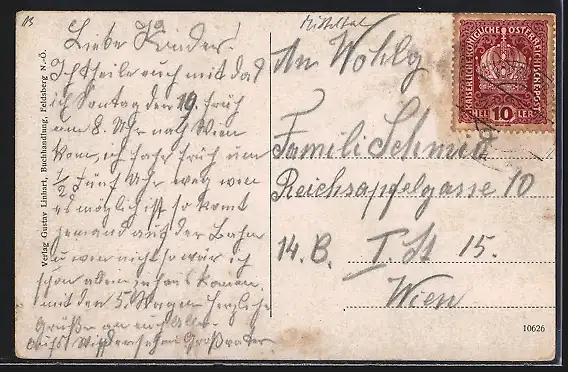 13
Liebe Kinder!
Ich theile euch mit das
ich Sontag den 19 früh
um 8. Uhr nach Wien
kom, ich fahr früh um
1/2 fünf Uhr weg wen
es möglich ist so komt
jemand auf der Bahn
u wen nicht so wär ich
schon allein zu haus komen.
mit den 5. Wagen herzliche
Grüße an euch Alle
aufs Wiedersehn Großvater
Verlag Gustav Linhart, Buchhandlung, Feldsberg N.-Ö.
An Wohlg
Famili Schmid
Reichsapfelgasse 10
14. B. I. St 15.
Wien
KAISERLICHE KÖNIGLICHE ÖSTERREICHISCHE POST
HEL 10 LER
10626